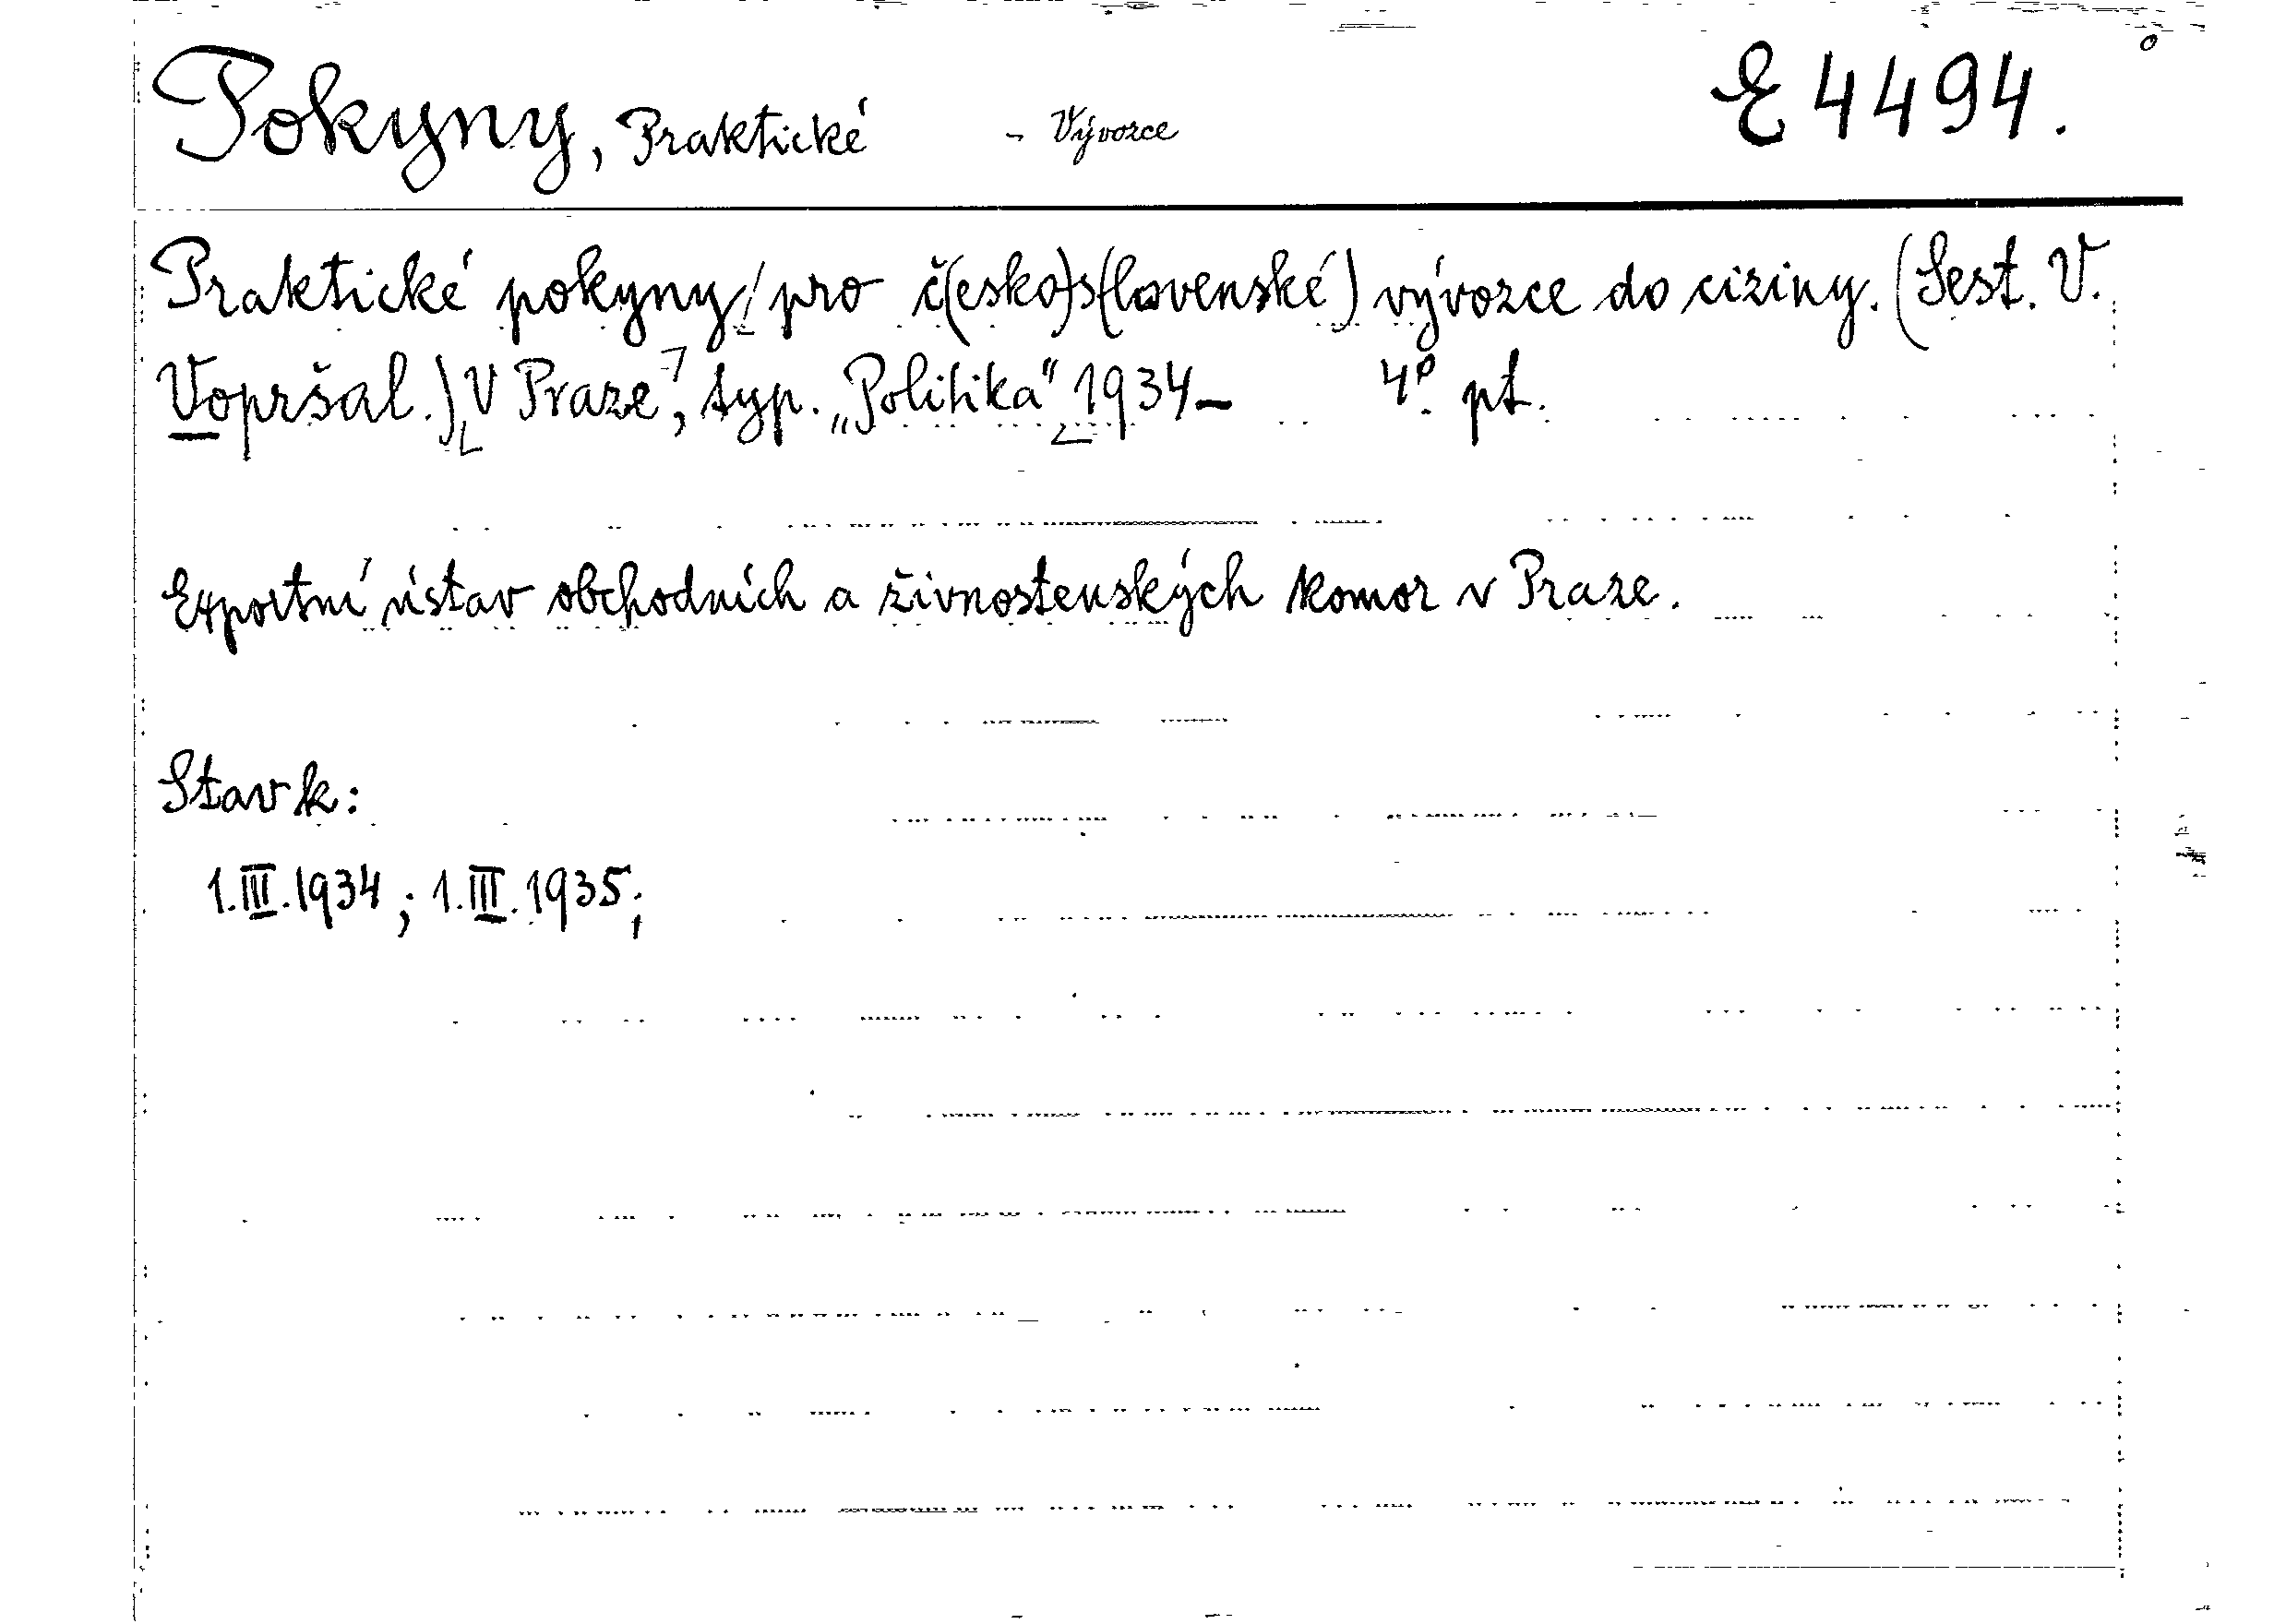 Pokyny, Praktické - Vývozce E 4494.
Praktické pokyny pro č(esko)s(lovenské) vývozce do ciziny. (Sest. V.
Vopršal.) V Praze, typ. „Politika“ 1934- 4° pt.
Exportní ústav obchodních a živnostenských komor v Praze.
Stav k:
1.III.1934; 1.III.1935;